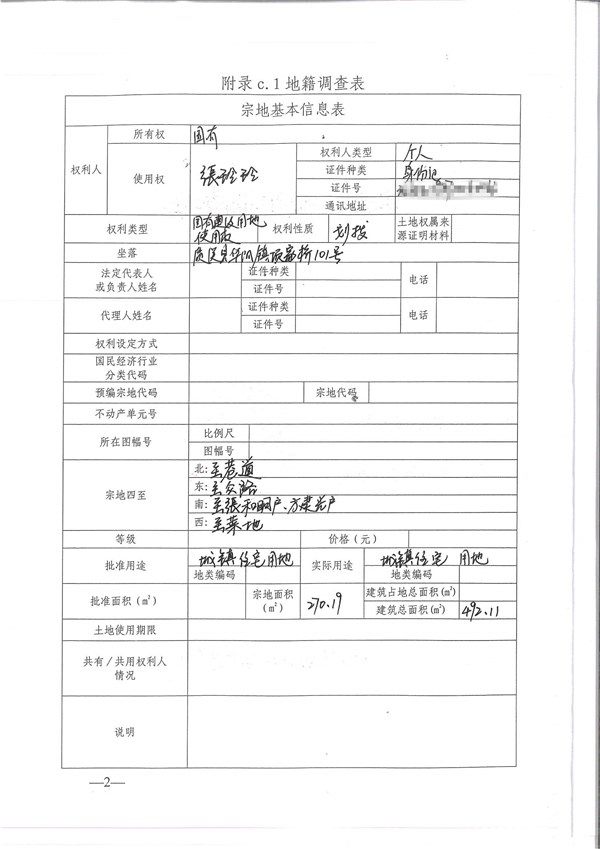 附录c.1地籍调查表
宗地基本信息表
权利人 所有权 国有
使用权 張玲玲 权利人类型 个人
证件种类 身份证
证件号
通讯地址
权利类型 国有建设用地使用权 权利性质 划拨 土地权属来源证明材料
坐落 101号
法定代表人或负责人姓名 证件种类 电话
证件号
代理人姓名 证件种类 电话
证件号
权利设定方式
国民经济行业分类代码
预编宗地代码 宗地代码
不动产单元号
所在图幅号 比例尺
图幅号
宗地四至 北:至巷道
东:至公路
南:至張和明户、方建光户
西:至菜地
等级 价格(元)
批准用途 城镇住宅用地 实际用途 城镇住宅用地
地类编码 地类编码
批准面积(m²) 宗地面积(m²) 270.19 建筑占地总面积(m²)
建筑总面积(m²) 492.11
土地使用期限
共有/共用权利人情况
说明
—2—